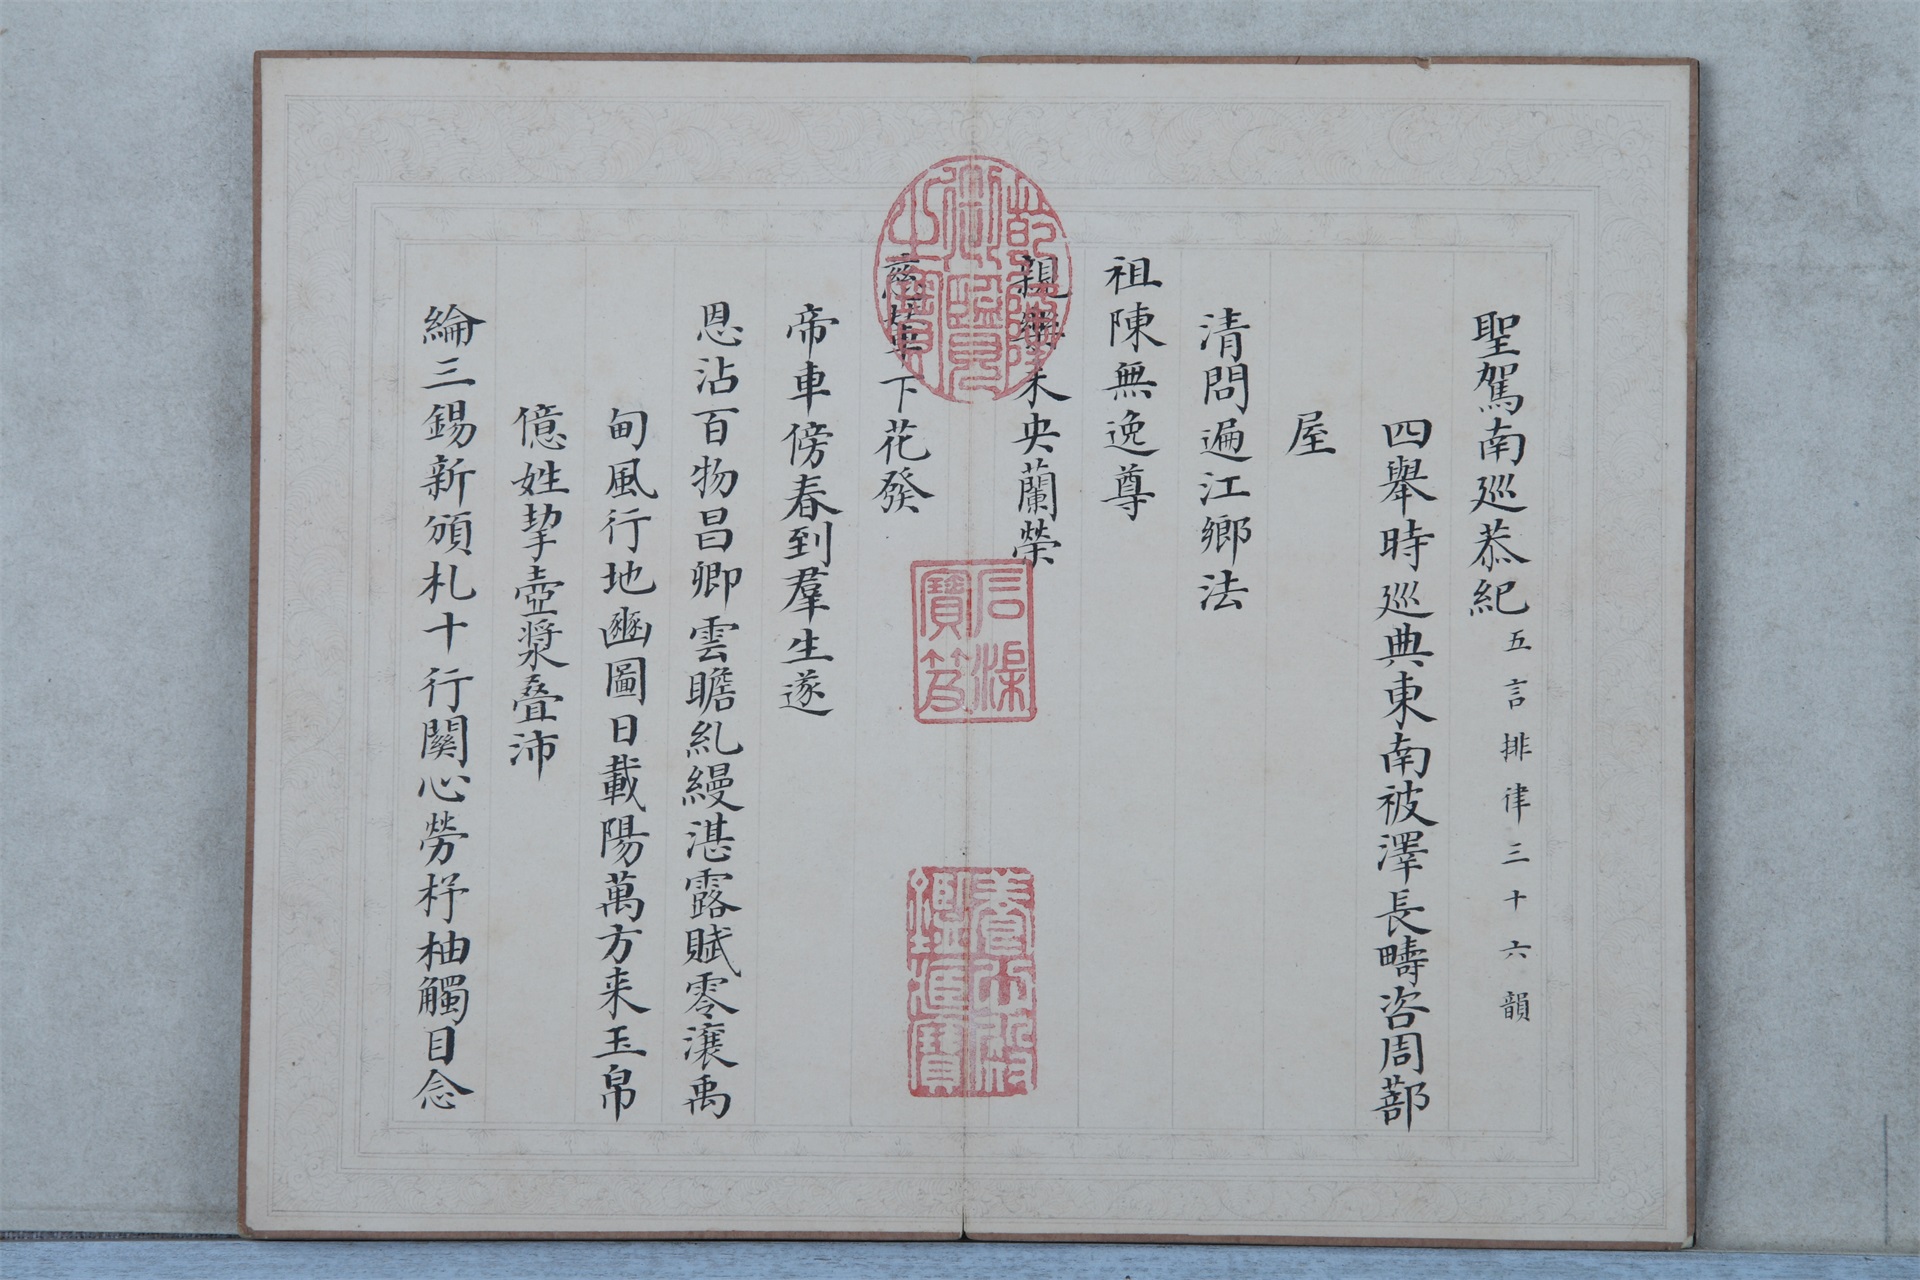 聖駕南廵恭紀五言排律三十六韻
四舉時廵典東南被澤長疇咨周蔀
屋
清問遍江鄉法
祖陳無逸尊
親樂未央蘭榮
慈輦下花發
帝車傍春到羣生遂
恩沾百物昌卿雲瞻糺縵湛露賦零瀼禹
甸風行地豳圖日載陽萬方来玉帛
億姓挈壺漿叠沛
綸三錫新頒札十行關心勞杼柚觸目念
乾隆御覽之寶
石渠寶笈
養心殿鑑藏寶